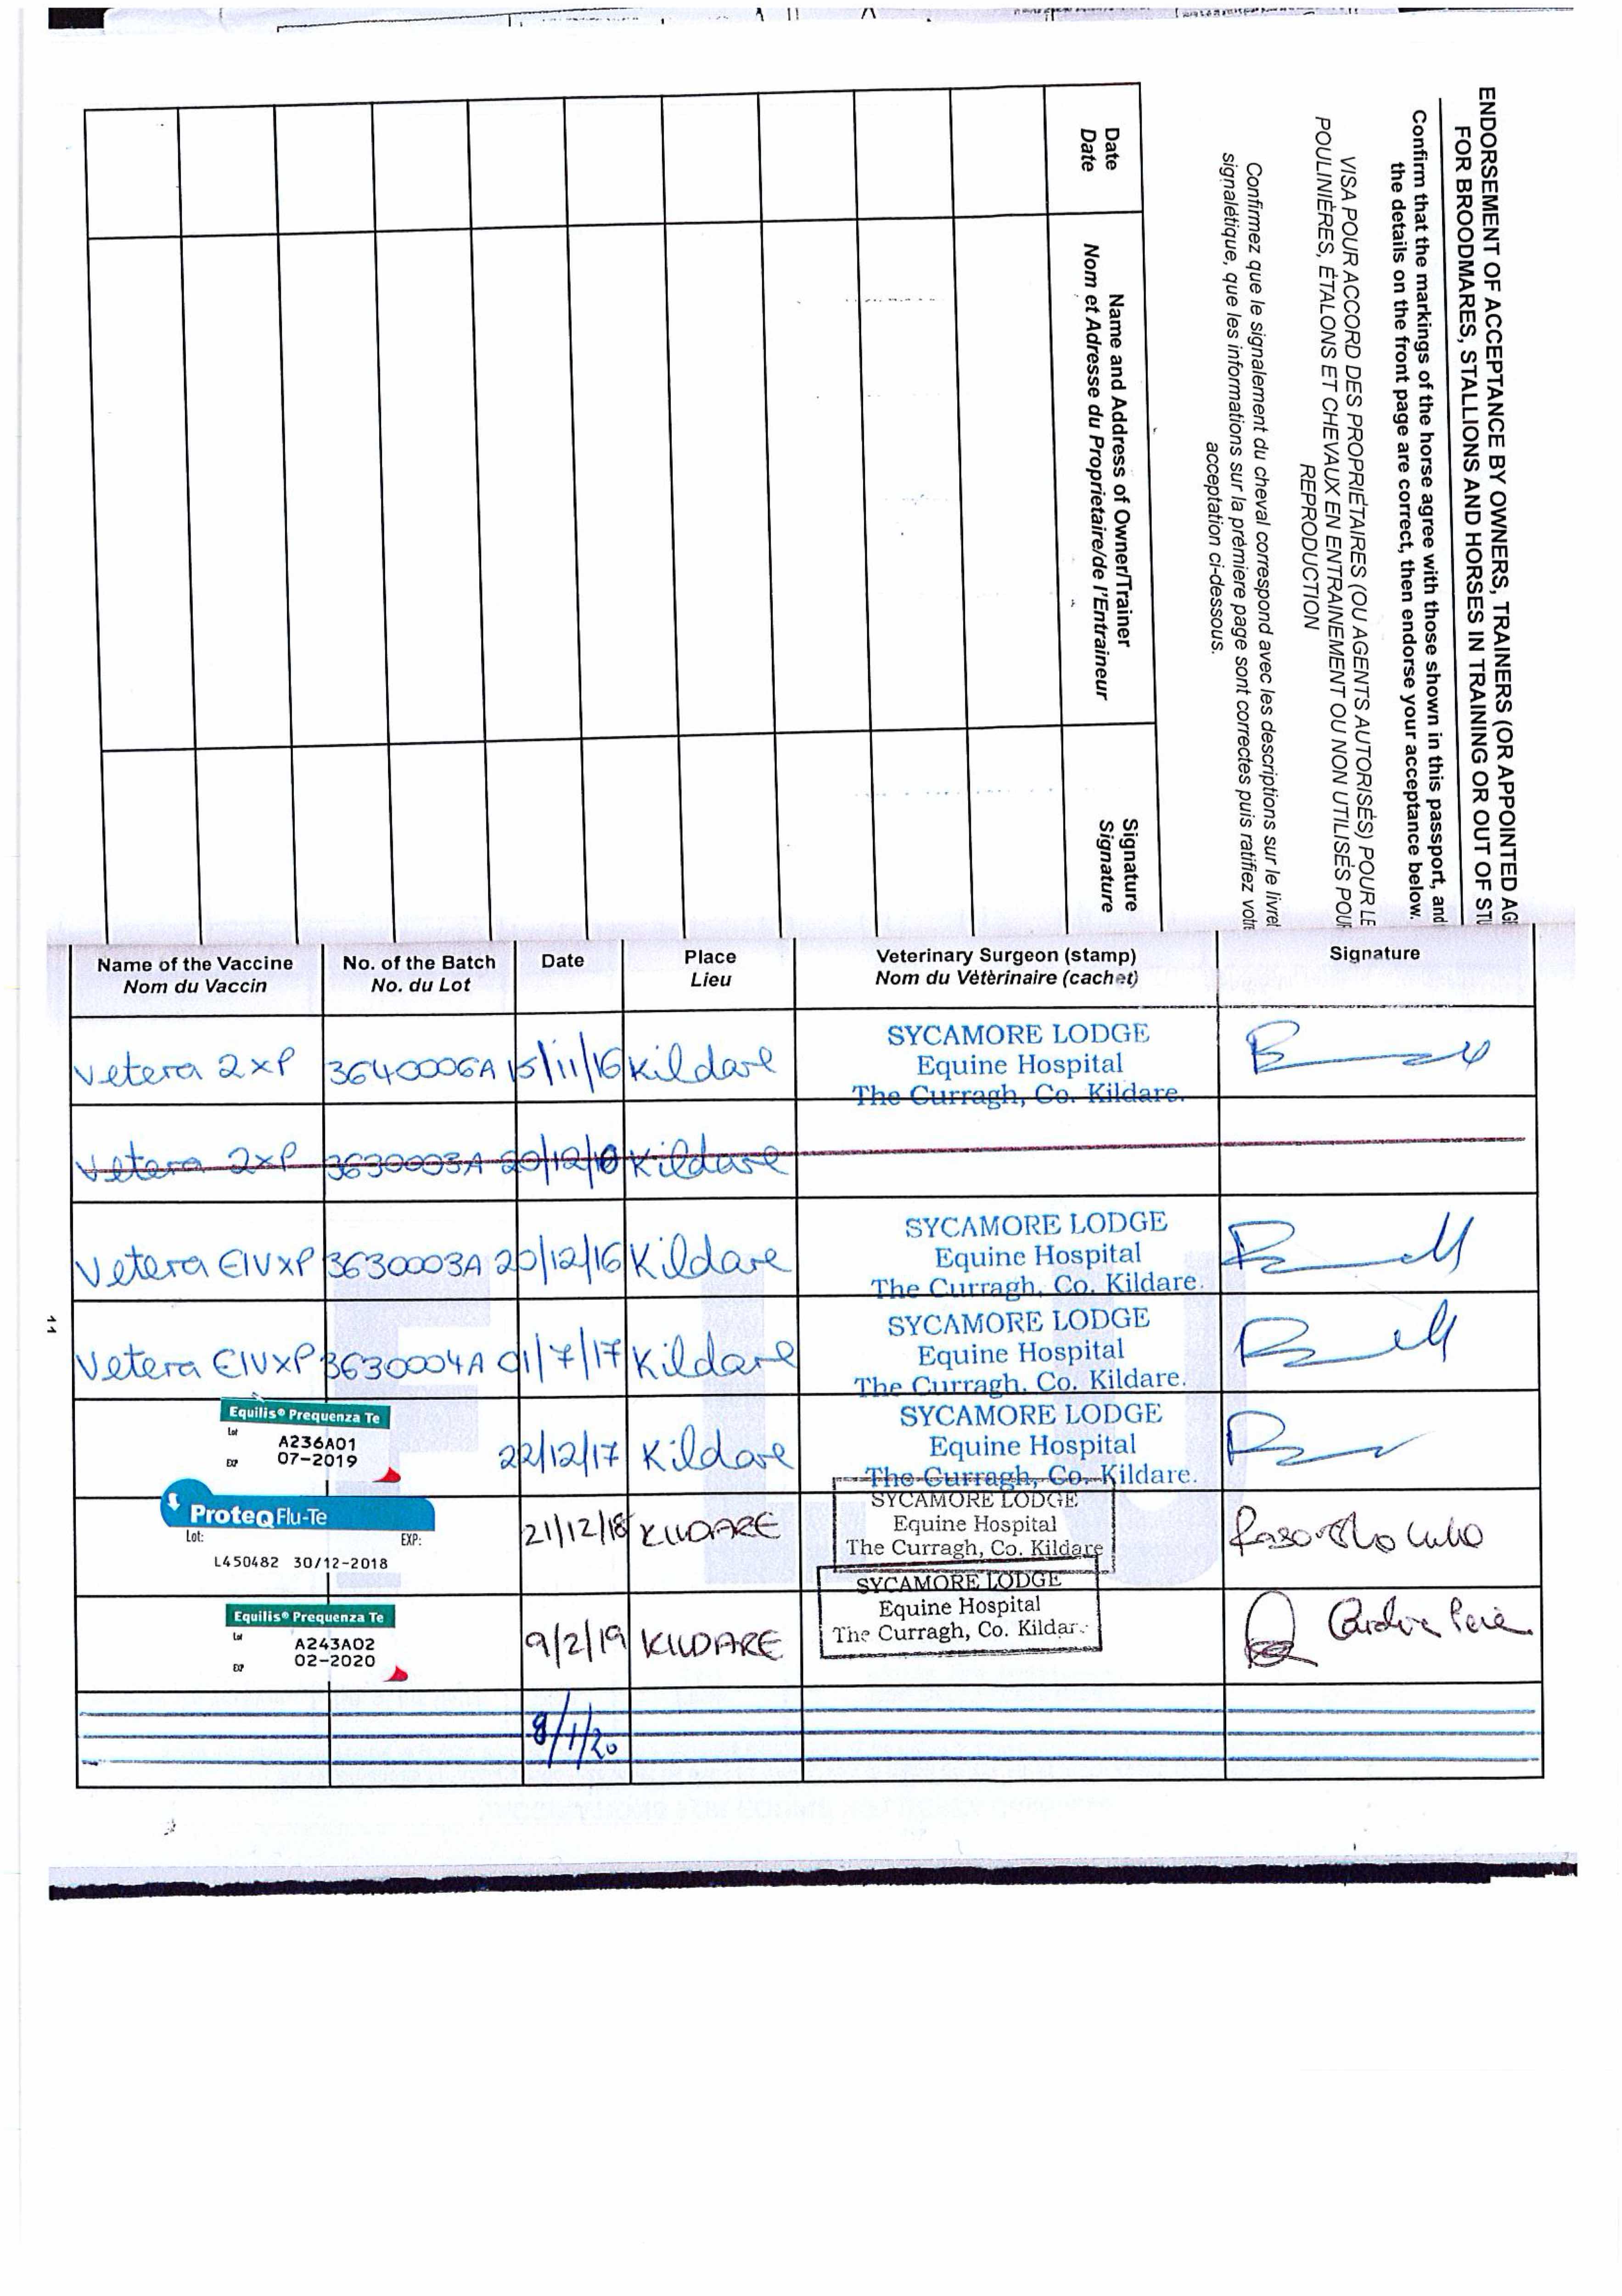 ENDORSEMENT OF ACCEPTANCE BY OWNERS, TRAINERS (OR APPOINTED AG
FOR BROODMARES, STALLIONS AND HORSES IN TRAINING OR OUT OF STU
Confirm that the markings of the horse agree with those shown in this passport, and
the details on the front page are correct, then endorse your acceptance below.
VISA POUR ACCORD DES PROPRIÉTAIRES (OU AGENTS AUTORISÉS) POUR LE
POULINIÈRES, ÉTALONS ET CHEVAUX EN ENTRAINEMENT OU NON UTILISÉS POUR
REPRODUCTION
Confirmez que le signalement du cheval correspond avec les descriptions sur le livret
signalétique, que les informations sur la prémiere page sont correctes puis ratifiez votre
acceptation ci-dessous.
Date
Date
Name and Address of Owner/Trainer
Nom et Adresse du Proprietaire/de l'Entraineur
Signature
Signature
Name of the Vaccine No. of the Batch Date Place Veterinary Surgeon (stamp) Signature
Nom du Vaccin No. du Lot Lieu Nom du Vétèrinaire (cachet)
Vetera 2xP 3640006A 15/11/16 Kildare
SYCAMORE LODGE
Equine Hospital
The Curragh, Co. Kildare.
Vetera 2xP 3630003A 20/12/16 Kildare
Vetera EIVxP 3630003A 20/12/16 Kildare
SYCAMORE LODGE
Equine Hospital
The Curragh, Co. Kildare.
Vetera EIVxP 3630004A 01/7/17 Kildare
SYCAMORE LODGE
Equine Hospital
The Curragh, Co. Kildare.
Equilis® Prequenza Te
Lot A236A01
EXP 07-2019
22/12/17 Kildare
SYCAMORE LODGE
Equine Hospital
The Curragh, Co. Kildare.
ProteqFlu-Te
Lot: EXP:
L450482 30/12-2018
21/12/18 KILDARE
SYCAMORE LODGE
Equine Hospital
The Curragh, Co. Kildare
Equilis® Prequenza Te
Lot A243A02
EXP 02-2020
9/2/19 KILDARE
SYCAMORE LODGE
Equine Hospital
The Curragh, Co. Kildar.
8/1/20
11